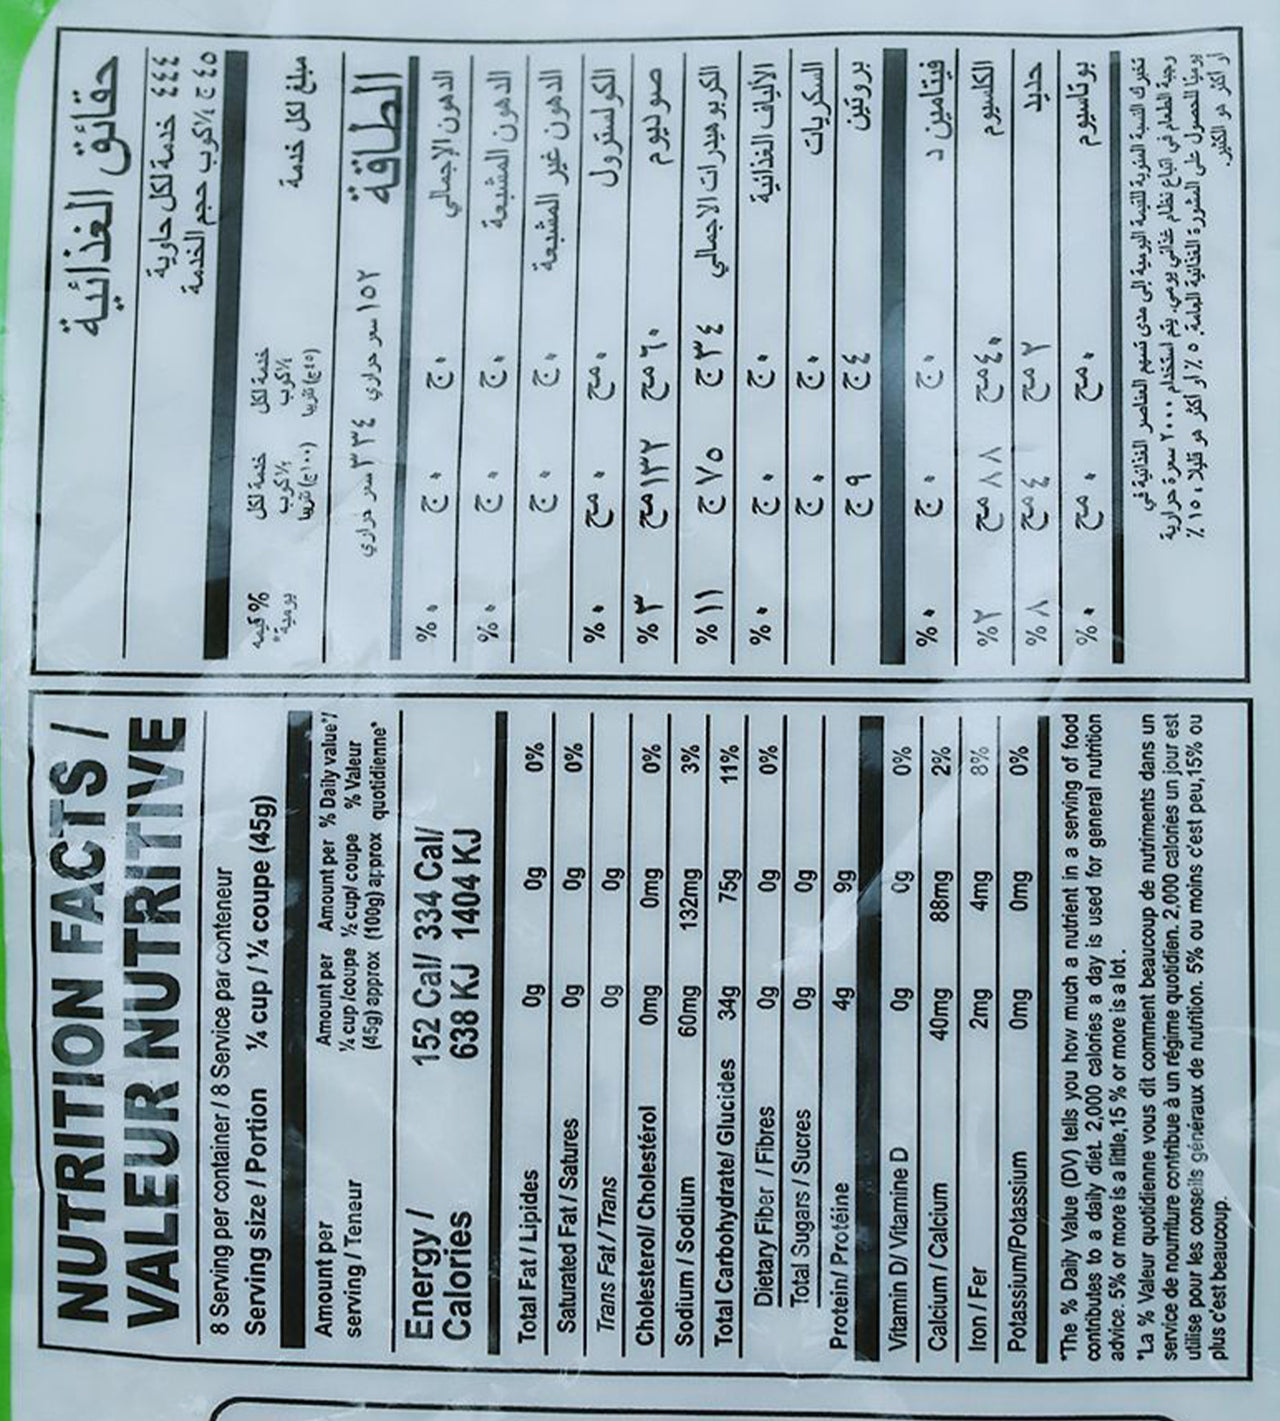 NUTRITION FACTS /
VALEUR NUTRITIVE
8 Serving per container / 8 Service par conteneur
Serving size / Portion ¼ cup / ¼ coupe (45g)
Amount per serving / Teneur
Amount per ¼ cup /coupe (45g) approx
Amount per ½ cup/ coupe (100g) approx
% Daily value*/ % Valeur quotidienne*
Energy / Calories 152 Cal/ 638 KJ 334 Cal/ 1404 KJ
Total Fat / Lipides 0g 0g 0%
Saturated Fat / Satures 0g 0g 0%
Trans Fat / Trans 0g 0g
Cholesterol/ Cholestérol 0mg 0mg 0%
Sodium / Sodium 60mg 132mg 3%
Total Carbohydrate/ Glucides 34g 75g 11%
Dietary Fiber / Fibres 0g 0g 0%
Total Sugars / Sucres 0g 0g
Protein/ Protéine 4g 9g
Vitamin D/ Vitamine D 0g 0g 0%
Calcium / Calcium 40mg 88mg 2%
Iron / Fer 2mg 4mg 8%
Potassium/Potassium 0mg 0mg 0%
*The % Daily Value (DV) tells you how much a nutrient in a serving of food
contributes to a daily diet. 2,000 calories a day is used for general nutrition
advice. 5% or more is a little,15 % or more is a lot .
*La % Valeur quotidienne vous dit comment beaucoup de nutriments dans un
service de nourriture contribue à un régime quotidien. 2,000 calories un jour est
utilise pour les conseils généraux de nutrition. 5% ou moins c'est peu,15% ou
plus c'est beaucoup.
حقائق الغذائية
٤٤٤ خدمة لكل حاوية
٤٥ ج ¼كوب حجم الخدمة
مبلغ لكل خدمة
خدمة لكل ¼كوب (٤٥ج) تقريبا
خدمة لكل ½كوب (١٠٠ج) تقريبا
% قيمه يومية*
الطاقة ١٥٢ سعر حراري ٣٣٤ سعر حراري
الدهون الإجمالي ٠ج ٠ج ٠%
الدهون المشبعة ٠ج ٠ج ٠%
الدهون غير المشبعة ٠ج ٠ج
الكولسترول ٠مج ٠مج ٠%
صوديوم ٦٠مج ١٣٢مج ٣%
الكربوهيدرات الاجمالي ٣٤ج ٧٥ج ١١%
الألياف الغذائية ٠ج ٠ج ٠%
السكريات ٠ج ٠ج
بروتين ٤ج ٩ج
فيتامين د ٠ج ٠ج ٠%
الكلسيوم ٤٠مج ٨٨مج ٢%
حديد ٢مج ٤مج ٨%
بوتاسيوم ٠مج ٠مج ٠%
تخبرك النسبة المئوية للقيمة اليومية إلى مدى تسهم العناصر الغذائية في
وجبة الطعام في اتباع نظام غذائي يومي. يتم استخدام ٢٠٠٠ سعرة حرارية
يوميًا للحصول على المشورة الغذائية العامة. ٥٪ أو أكثر هو قليلا ، ١٥٪
أو أكثر هو الكثير.